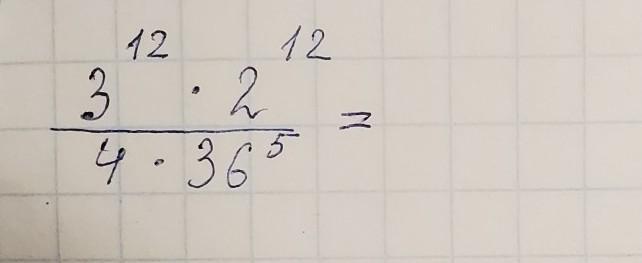 3¹² · 2¹² =
4 · 36⁵